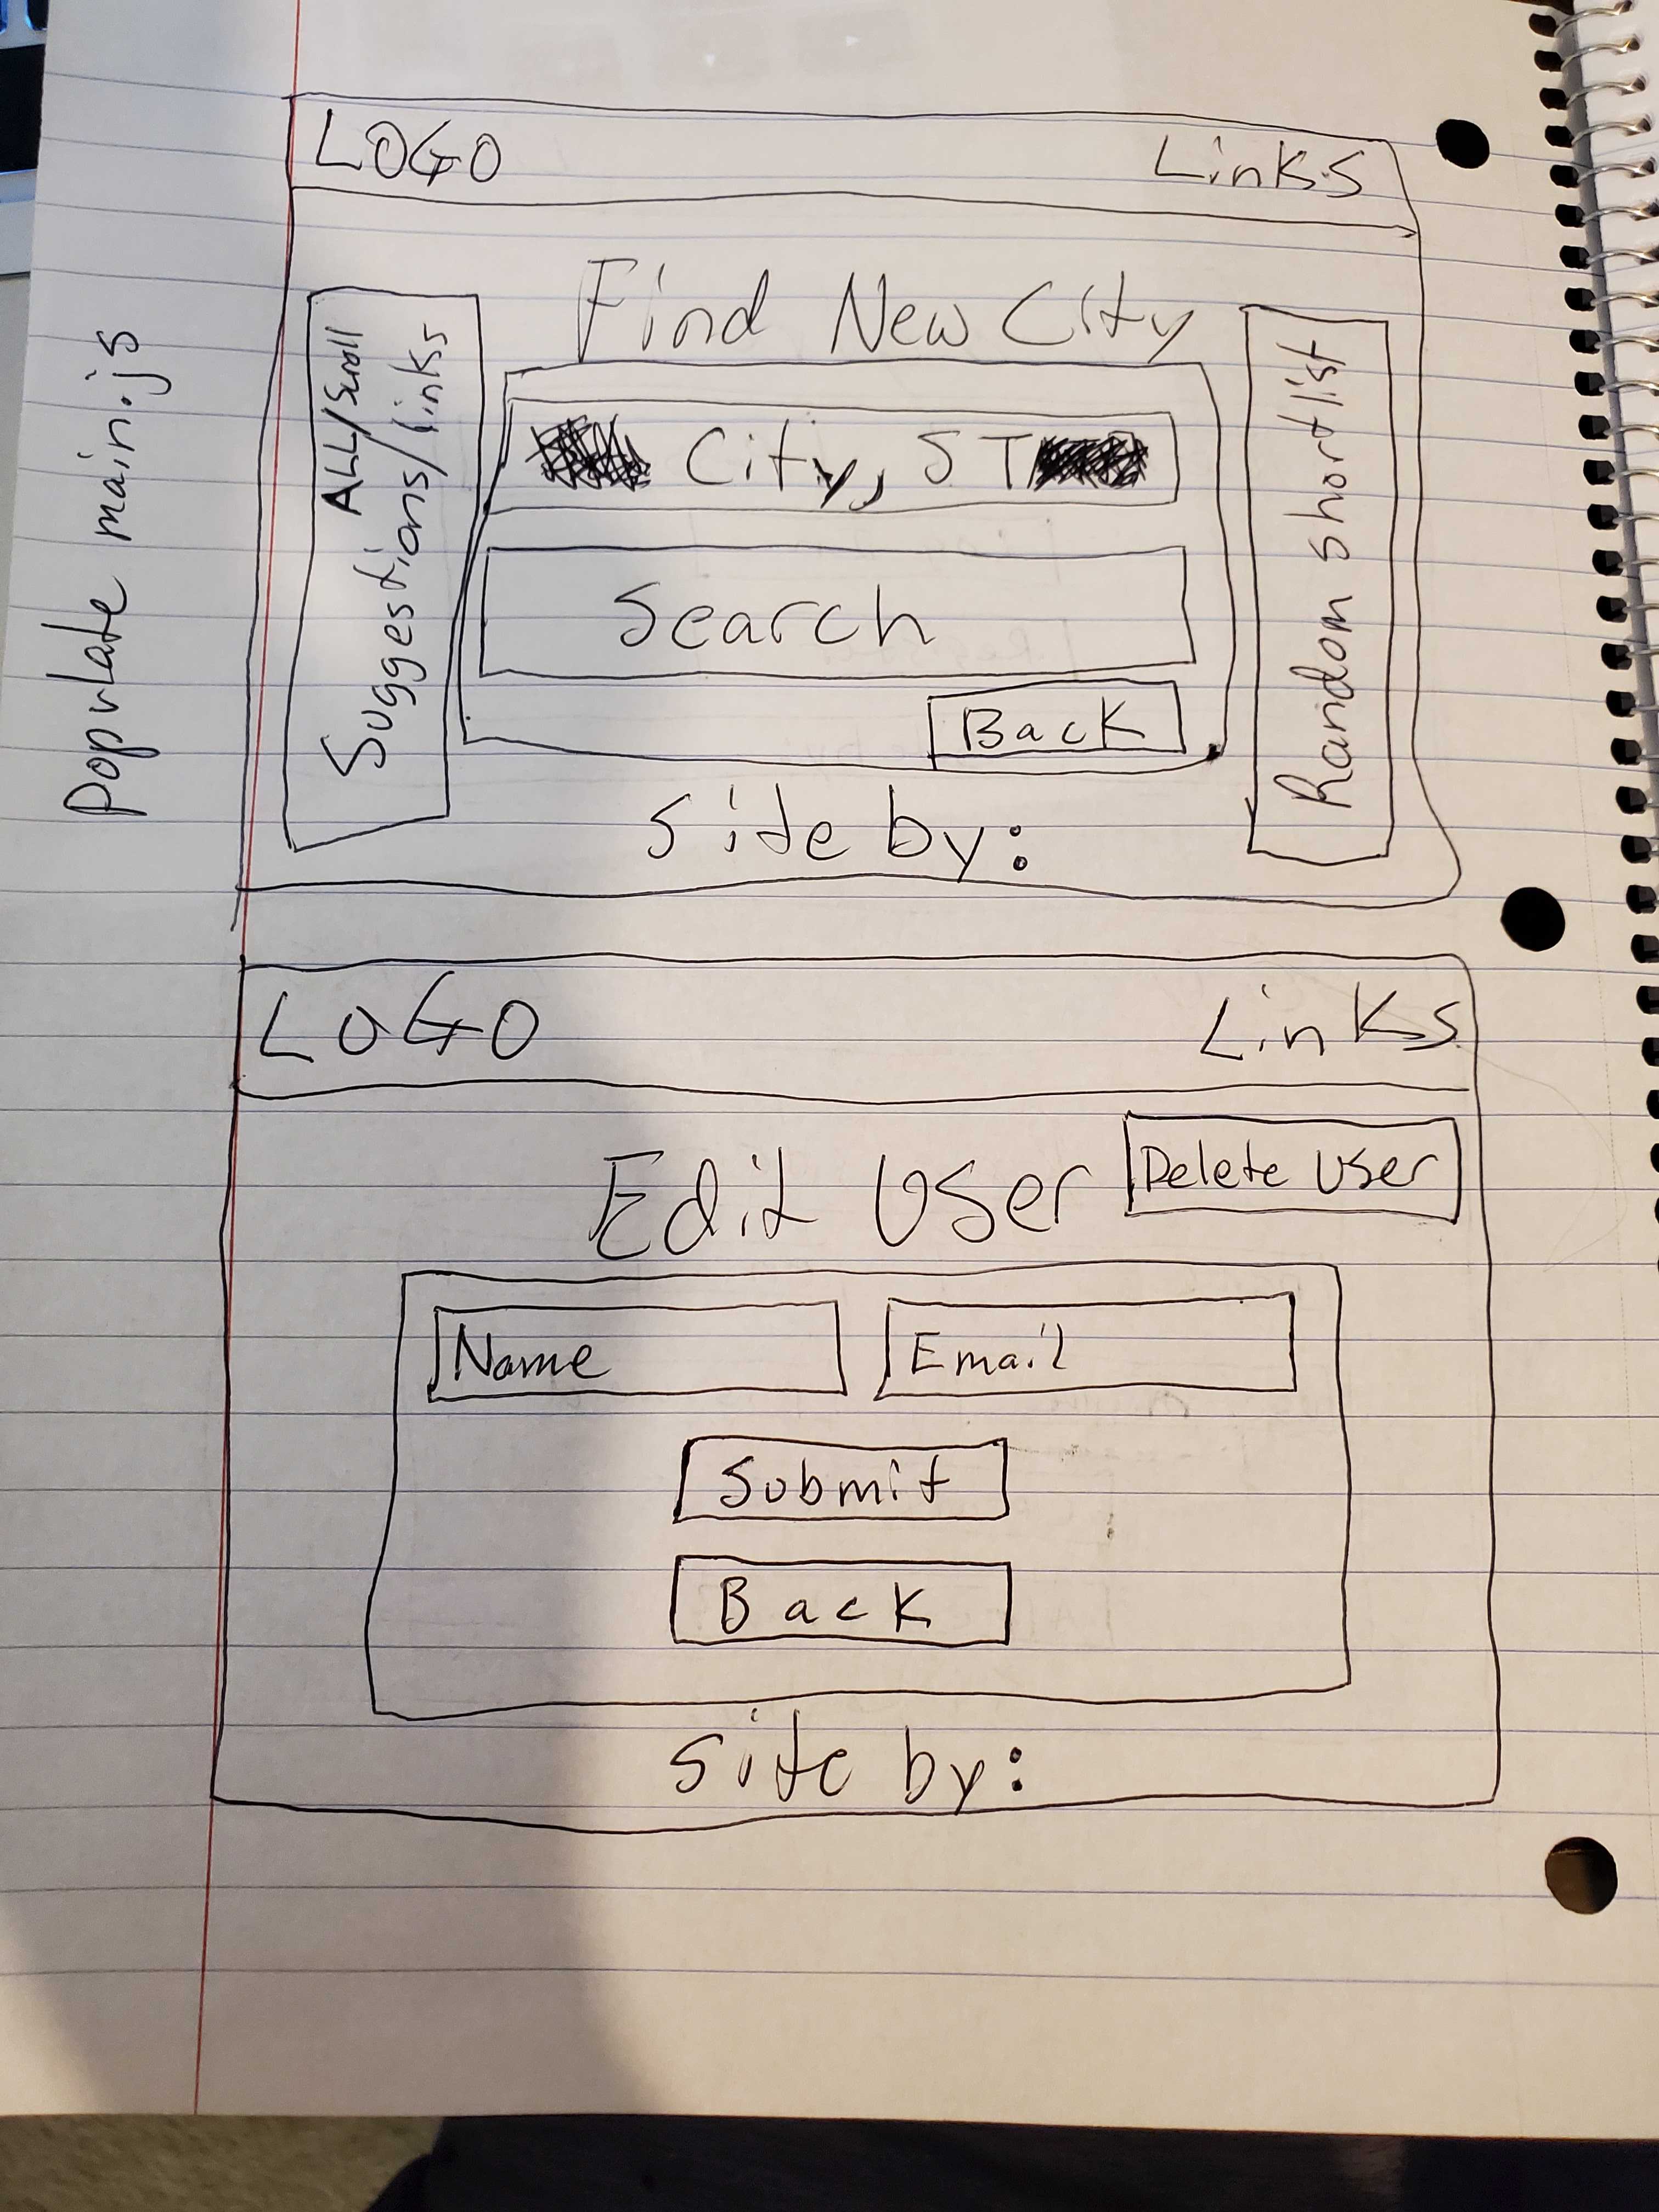 Populate main.js
LOGO
Links
Find New City
ALL/Scroll
Suggestions/links
City, ST
Search
Back
Random Shortlist
Site by:
LOGO
Links
Edit User
Delete User
Name
Email
Submit
Back
Site by: